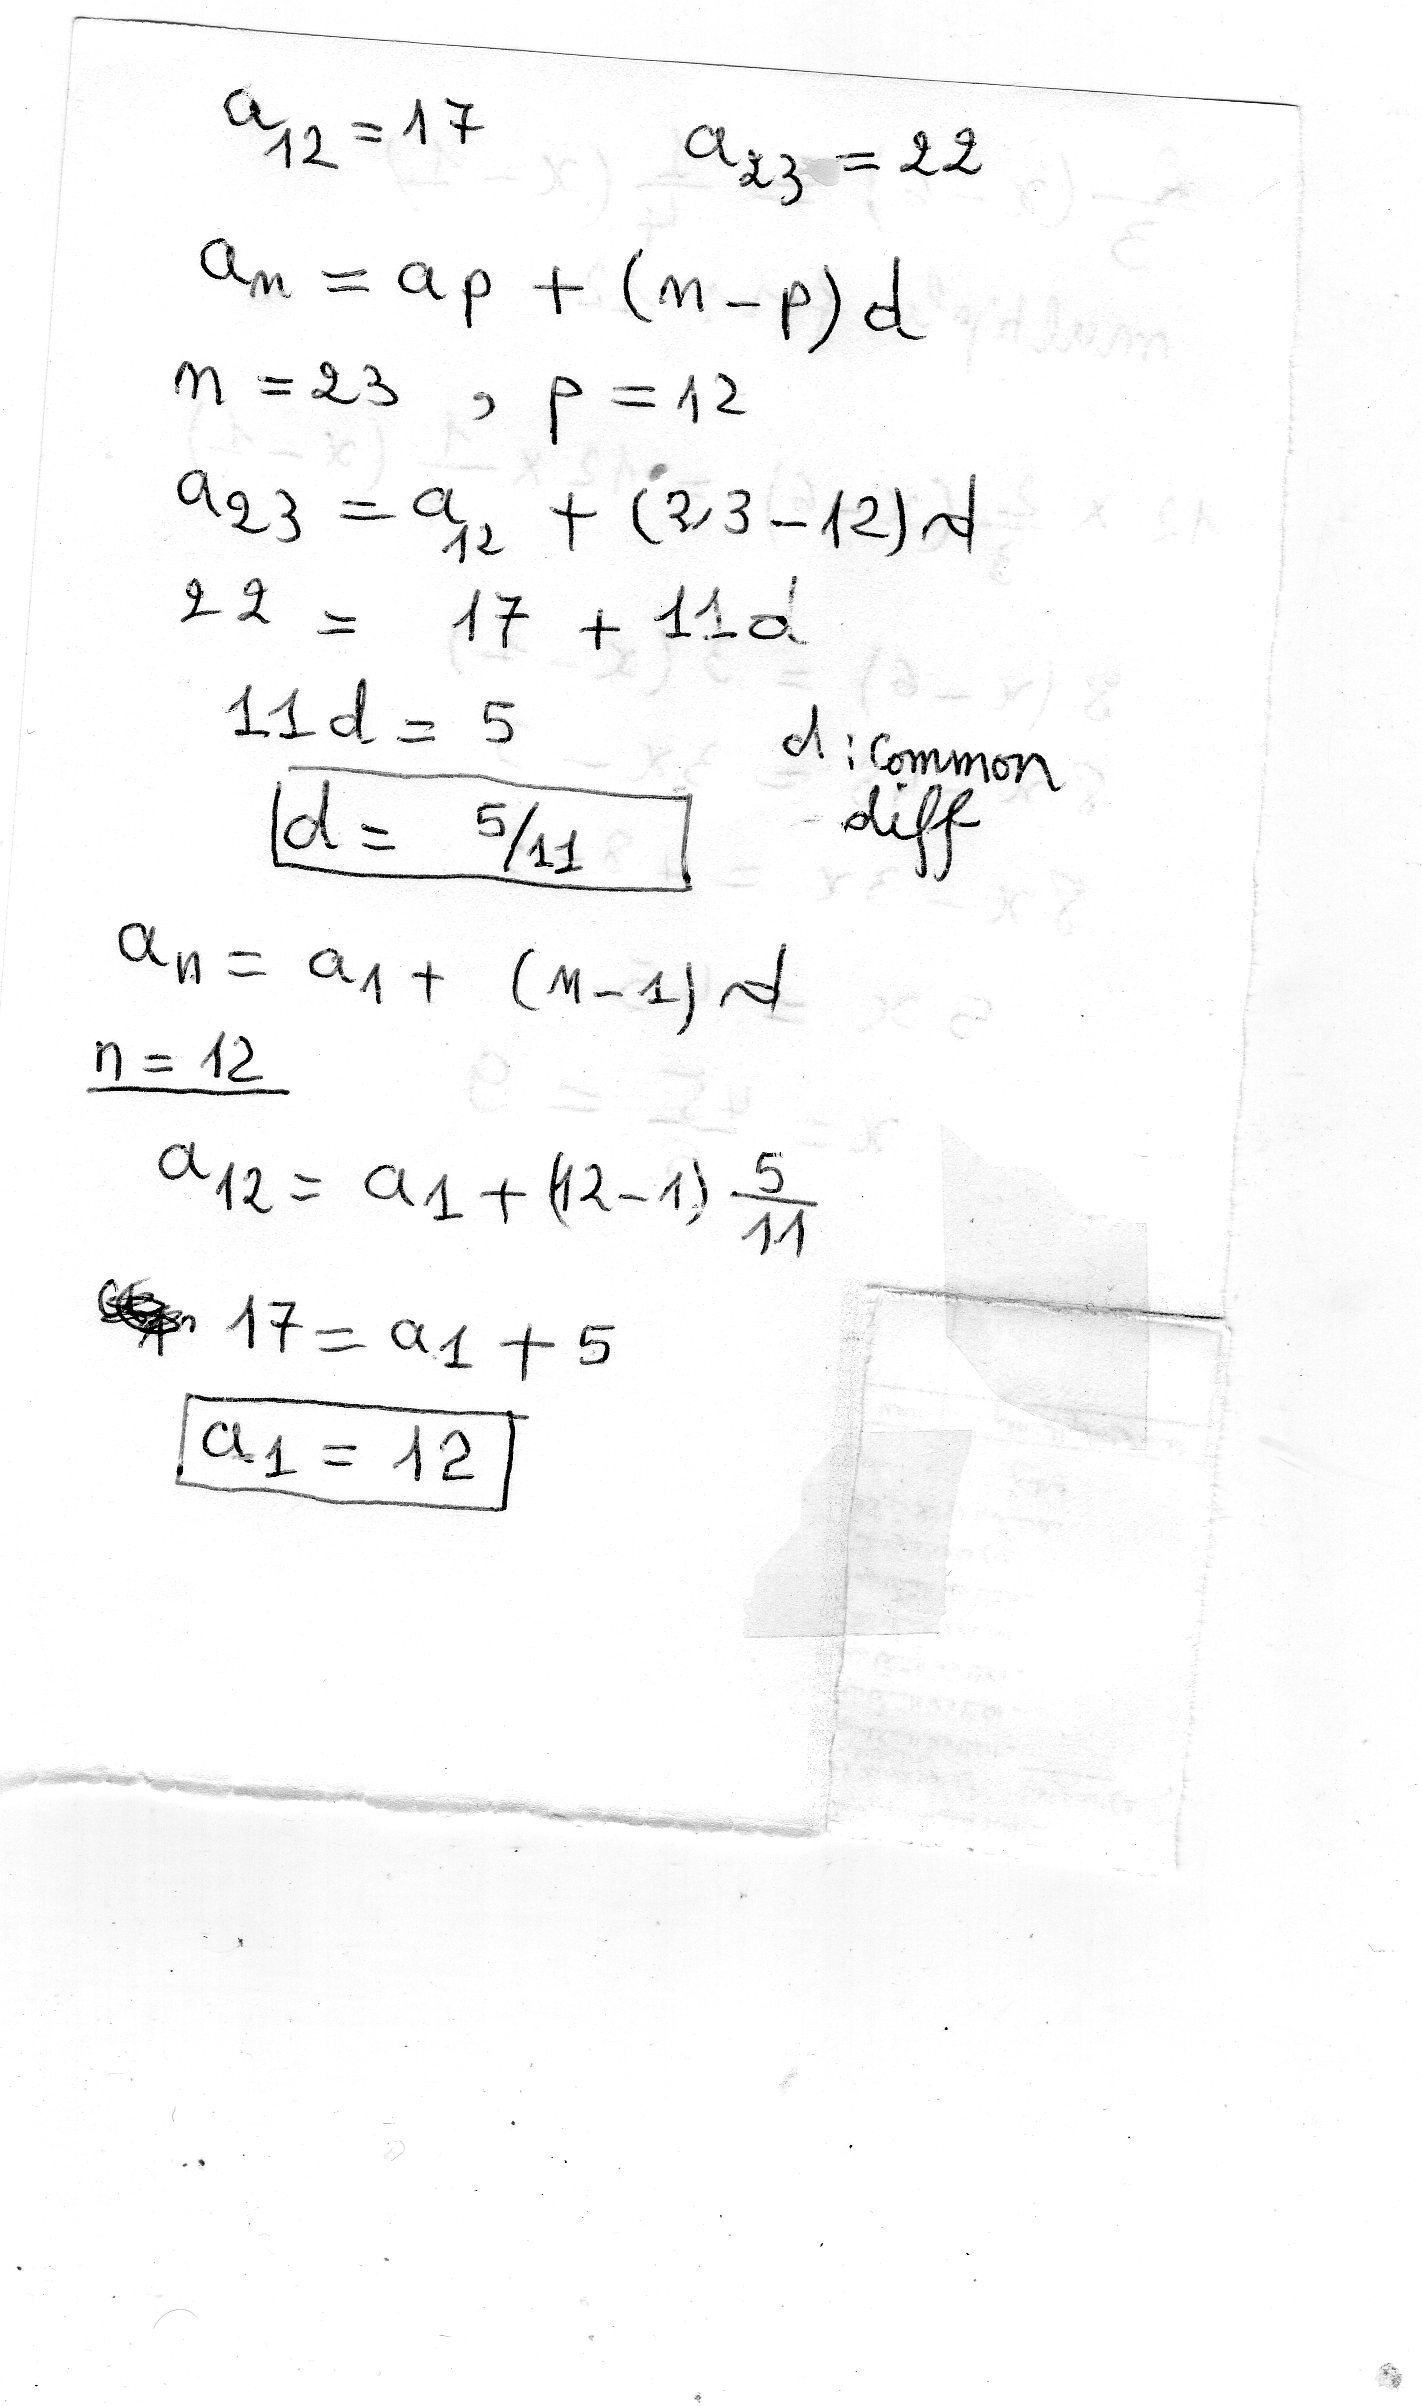 a₁₂ = 17 a₂₃ = 22
aₙ = aₚ + (n - p) d
n = 23 , p = 12
a₂₃ = a₁₂ + (23 - 12) d
22 = 17 + 11d
11d = 5
d : common
diff
d = 5/11
aₙ = a₁ + (n - 1) d
n = 12
a₁₂ = a₁ + (12 - 1) 5/11
17 = a₁ + 5
a₁ = 12